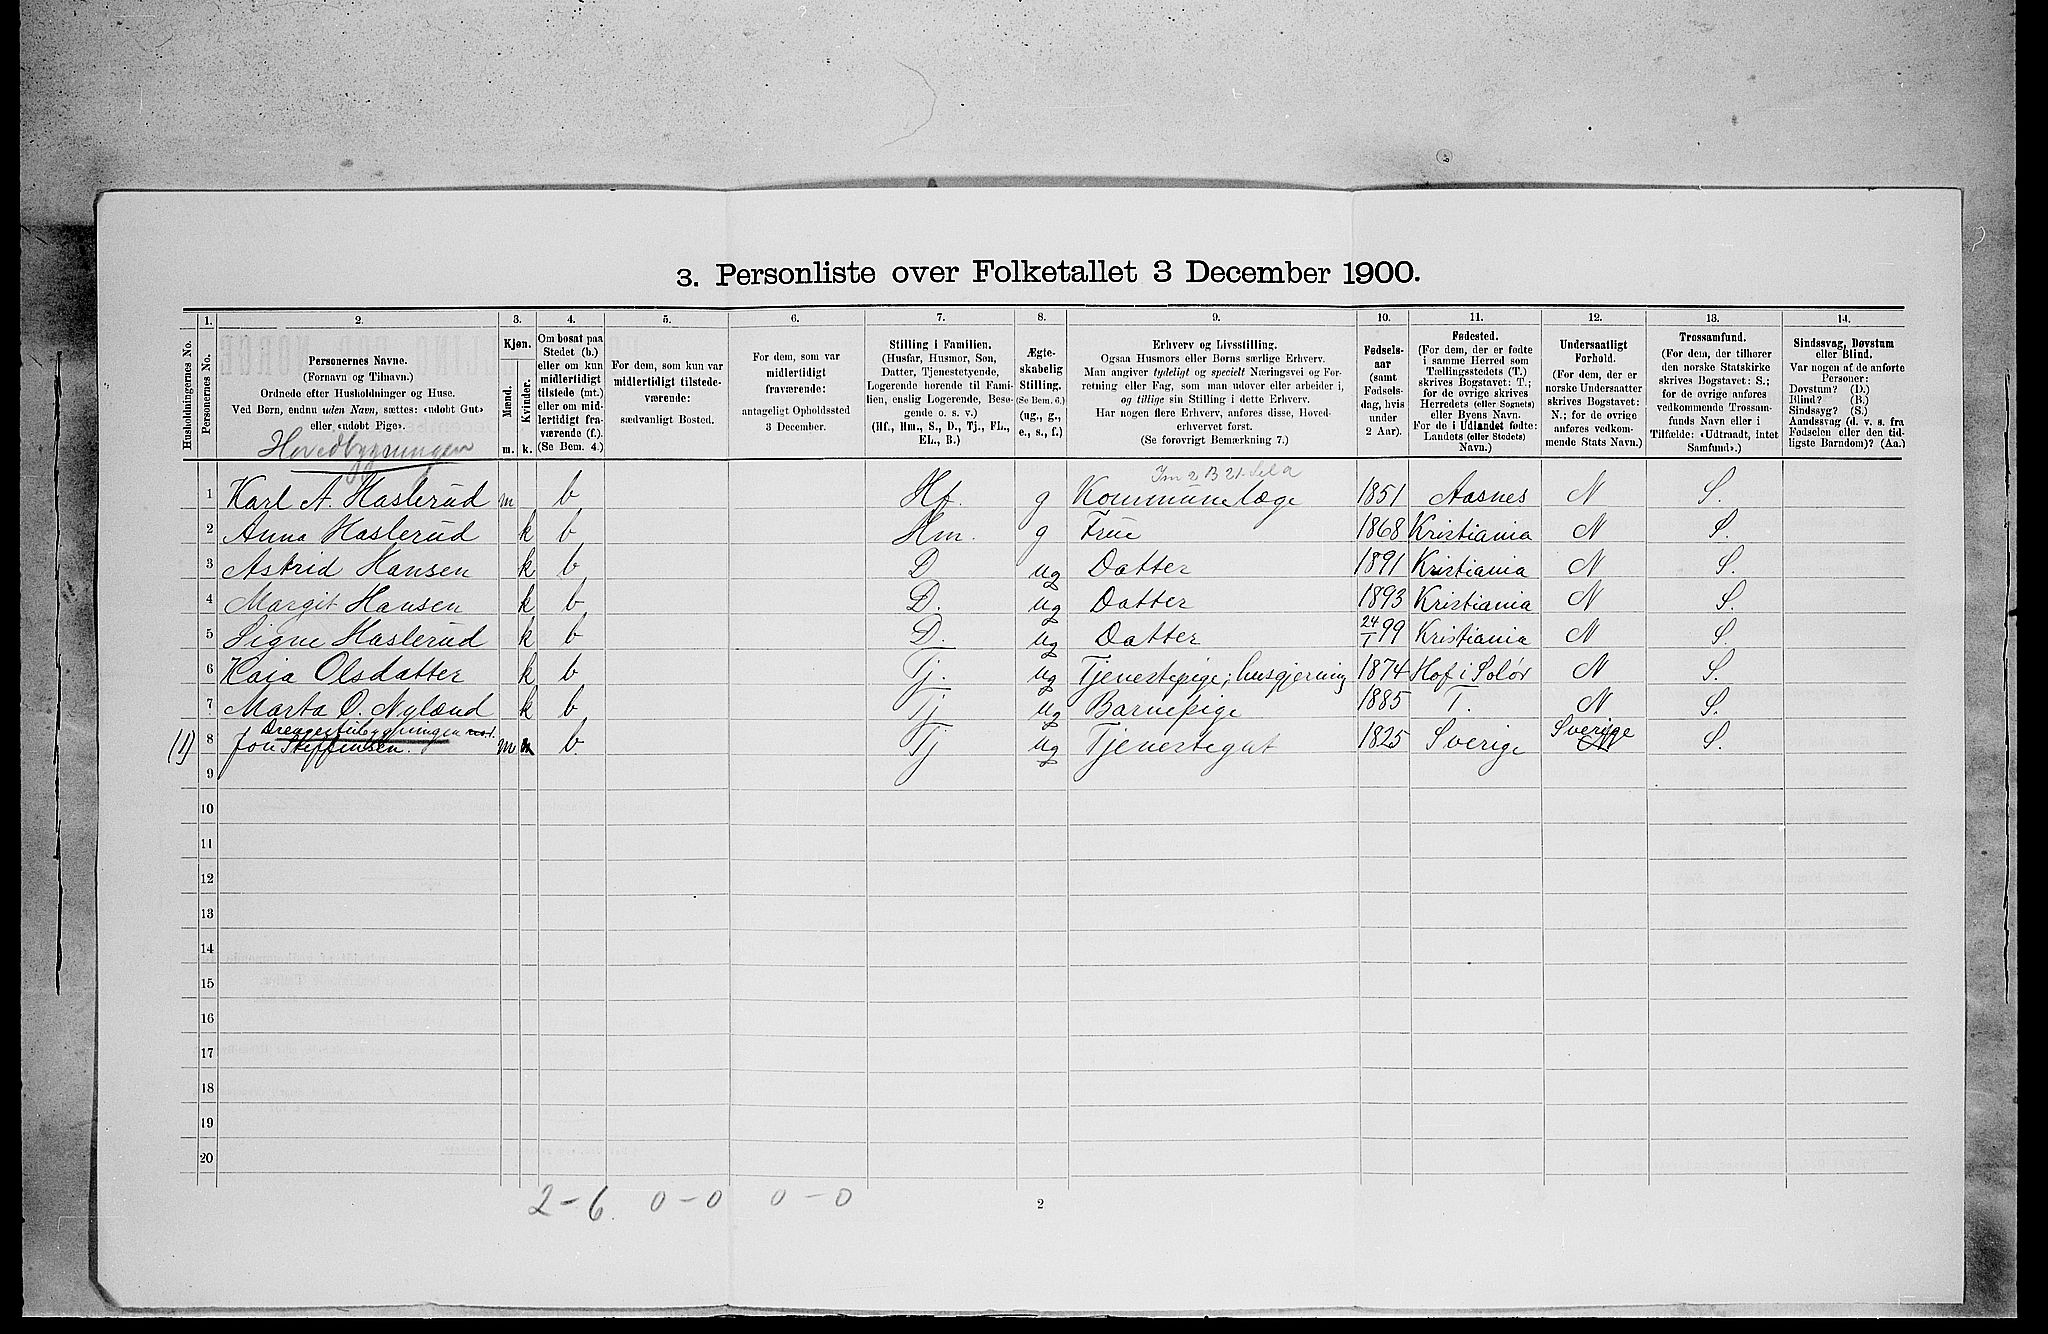 3. Personliste over Folketallet 3 December 1900.
1. 2. 3. 4. 5. 6. 7. 8. 9. 10. 11. 12. 13. 14.
Husholdningernes No.
Personernes No.
Personernes Navne.
(Fornavn og Tilnavn.)
Ordnede efter Husholdninger og Huse.
Ved Børn, endnu uden Navn, sættes: «udøbt Gut»
eller «udøbt Pige».
Hovedbygningen
Kjøn.
Mænd.
Kvinder.
m. k.
Om bosat paa
Stedet (b.)
eller om kun
midlertidigt
tilstede (mt.)
eller om mid-
lertidigt fra-
værende (f.).
(Se Bem. 4.)
For dem, som kun var
midlertidigt tilstede-
værende:
sædvanligt Bosted.
For dem, som var
midlertidigt
fraværende:
antageligt Opholdssted
3 December.
Stilling i Familien.
(Husfar, Husmor, Søn,
Datter, Tjenestetyende,
Logerende hørende til Fami-
lien, enslig Logerende, Besø-
gende o. s. v.)
(Hf., Hm., S., D., Tj., FL.,
EL., B.)
Ægte-
skabelig
Stilling.
(Se Bem. 6.)
(ug., g.,
e., s., f.)
Erhverv og Livsstilling.
Ogsaa Husmors eller Børns særlige Erhverv.
Man angiver tydeligt og specielt Næringsvei og For-
retning eller Fag, som man udøver eller arbeider i,
og tillige sin Stilling i dette Erhverv.
Har nogen flere Erhverv, anføres disse, Hoved-
erhvervet først.
(Se forøvrigt Bemærkning 7.)
Fødsels-
aar
(samt
Fødsels-
dag, hvis
under
2 Aar).
Fødested.
(For dem, der er fødte
i samme Herred som
Tællingsstedets (T.)
skrives Bogstavet: T.;
for de øvrige skrives
Herredets (eller Sognets)
eller Byens Navn.
For de i Udlandet fødte:
Landets (eller Stedets)
Navn.)
Undersaatligt
Forhold.
(For dem, der er
norske Undersaatter
skrives Bogstavet:
N.; for de øvrige
anføres vedkom-
mende Stats Navn.)
Trossamfund.
(For dem, der tilhører
den norske Statskirke
skrives Bogstavet: S.;
for de øvrige anføres
vedkommende Trossam-
funds Navn eller i
Tilfælde: «Udtraadt, intet
Samfund».)
Sindssvag, Døvstum
eller Blind.
Var nogen af de anførte
Personer:
Døvstum? (D.)
Blind? (B.)
Sindssyg? (S.)
Aandssvag (d. v. s. fra
Fødselen eller den tid-
ligste Barndom)? (Aa.)
1 Karl A. Haslerud m b Hf. g Kommunelæge 1851 Aasnes N S.
2 Anna Haslerud k b Hm. g Frue 1868 Kristiania N S.
3 Astrid Hansen k b D ug Datter 1891 Kristiania N S.
4 Margit Hansen k b D. ug Datter 1893 Kristiania N S.
5 Signe Haslerud k b D. ug Datter 24/1 99 Kristiania N S.
6 Kaia Olsdatter k b Tj. ug Tjenestepige; husgjerning 1874 Hof i Solør N S.
7 Marta O. Nylænd k b Tj ug Barnepige 1885 T. N S.
Drengestubygningen
(1) 8 Jon Steffensen. m b Tj ug Tjenestegut 1825 Sverige Sverige N S.
9
10
11
12
13
14
15
16
17
18
19
20
2-6 0-0 0-0
2